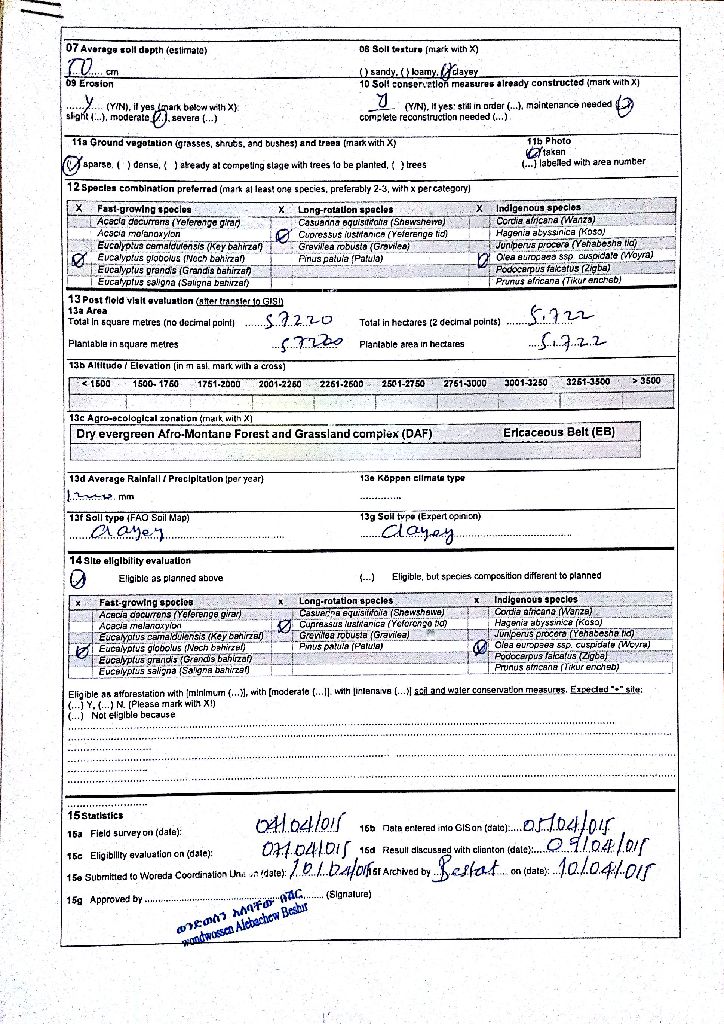 07 Average soil depth (estimate) 08 Soil texture (mark with X)
.... cm ( ) sandy, ( ) loamy, ( ) clayey
09 Erosion 10 Soil conservation measures already constructed (mark with X)
Y (Y/N), if yes (mark below with X): (Y/N), if yes: still in order (...), maintenance needed
slight (...), moderate, severe (...) complete reconstruction needed (...)
11a Ground vegetation (grasses, shrubs, and bushes) and trees (mark with X) 11b Photo
sparse, ( ) dense, ( ) already at competing stage with trees to be planted, ( ) trees taken
(...) labelled with area number
12 Species combination preferred (mark at least one species, preferably 2-3, with x per category)
X Fast-growing species X Long-rotation species X Indigenous species
Acacia decurrens (Yeferenge girar) Casuarina equisitifolia (Shewshewe) Cordia africana (Wanza)
Acacia melanoxylon Cupressus lusitanica (Yeferenge tid) Hagenia abyssinica (Koso)
Eucalyptus camaldulensis (Key bahirzaf) Grevillea robusta (Gravilea) Juniperus procera (Yehabesha tid)
Eucalyptus globolus (Nech bahirzaf) Pinus patula (Patula) Olea europaea ssp. cuspidata (Woyra)
Eucalyptus grandis (Grandis bahirzaf) Podocarpus falcatus (Zigba)
Eucalyptus saligna (Saligna bahirzaf) Prunus africana (Tikur encheb)
13 Post field visit evaluation (after transfer to GIS!)
13a Area
Total in square metres (no decimal point) 57220 Total in hectares (2 decimal points) 5.722
Plantable in square metres 57220 Plantable area in hectares 5.722
13b Altitude / Elevation (in m asl. mark with a cross)
< 1500 1500- 1750 1751-2000 2001-2250 2251-2500 2501-2750 2751-3000 3001-3250 3251-3500 > 3500
13c Agro-ecological zonation (mark with X)
Dry evergreen Afro-Montane Forest and Grassland complex (DAF) Ericaceous Belt (EB)
13d Average Rainfall / Precipitation (per year) 13e Köppen climate type
mm ..............
13f Soil type (FAO Soil Map) 13g Soil type (Expert opinion)
Clayey Clayey
14 Site eligibility evaluation
Eligible as planned above (...) Eligible, but species composition different to planned
x Fast-growing species x Long-rotation species x Indigenous species
Acacia decurrens (Yeferenge girar) Casuarina equisitifolia (Shewshewe) Cordia africana (Wanza)
Acacia melanoxylon Cupressus lusitanica (Yeferenge tid) Hagenia abyssinica (Koso)
Eucalyptus camaldulensis (Key bahirzaf) Grevillea robusta (Gravilea) Juniperus procera (Yehabesha tid)
Eucalyptus globolus (Nech bahirzaf) Pinus patula (Patula) Olea europaea ssp. cuspidata (Woyra)
Eucalyptus grandis (Grandis bahirzaf) Podocarpus falcatus (Zigba)
Eucalyptus saligna (Saligna bahirzaf) Prunus africana (Tikur encheb)
Eligible as afforestation with [minimum (...)], with [moderate (...)], with [intensive (...)] soil and water conservation measures. Expected "+" site:
(...) Y, (...) N. (Please mark with X!)
(...) Not eligible because
15 Statistics
15a Field survey on (date): 04/04/015 15b Data entered into GIS on (date): 05/04/015
15c Eligibility evaluation on (date): 07/04/015 15d Result discussed with client on (date): 09/04/015
15e Submitted to Woreda Coordination Unit on (date): 10/04/015 15f Archived by on (date): 10/04/015
15g Approved by (Signature)
ወንድወሰን አለባቸው በሽር
wondwossen Alebachew Beshir